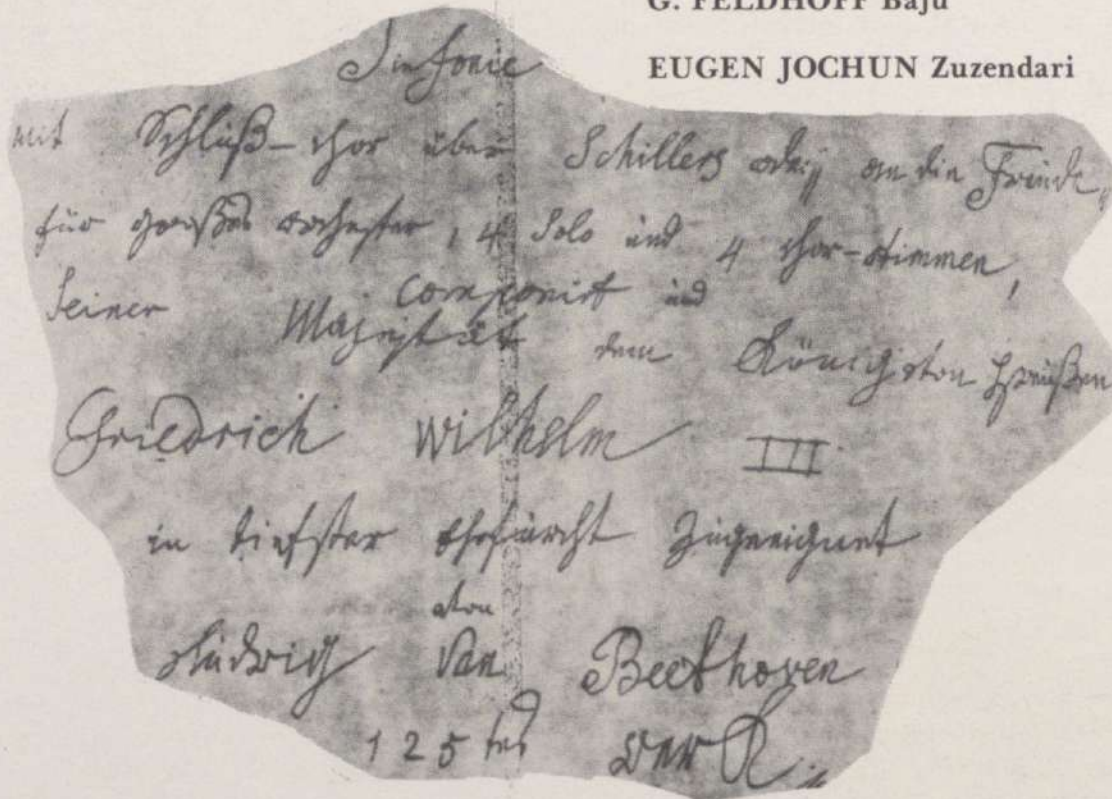 G. FELDHOFF Baju
EUGEN JOCHUN Zuzendari
Sinfonie
mit Schluß-chor über Schillers ode an die Freude,
für großes orchester, 4 Solo und 4 chor-stimmen,
componirt und
Seiner Majestät dem König von Preußen
Friedrich Wilhelm III
in tiefster Ehrfurcht zugeeignet
von
Ludwig van Beethoven
125tes Werk.